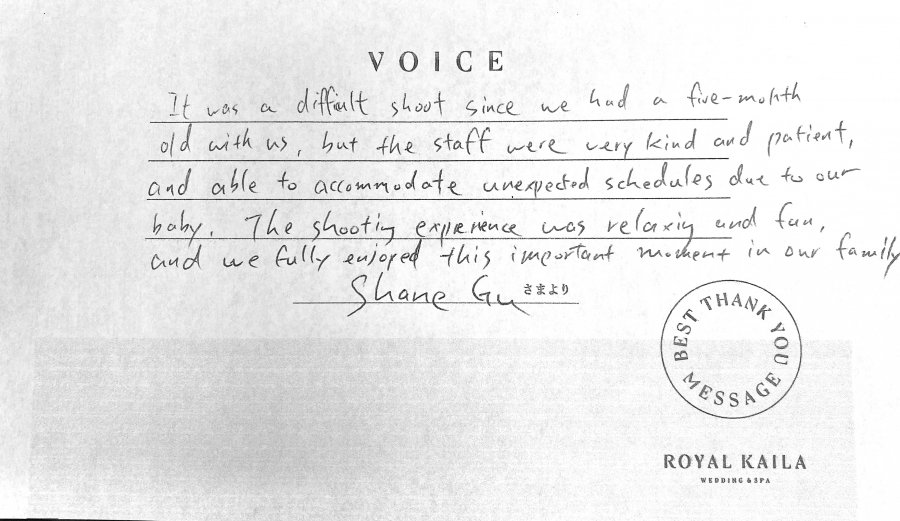 VOICE
It was a difficult shoot since we had a five-month
old with us, but the staff were very kind and patient,
and able to accommodate unexpected schedules due to our
baby. The shooting experience was relaxing and fun,
and we fully enjoyed this important moment in our family
Shane Gu さまより
BEST THANK YOU
MESSAGE
ROYAL KAILA
WEDDING & SPA